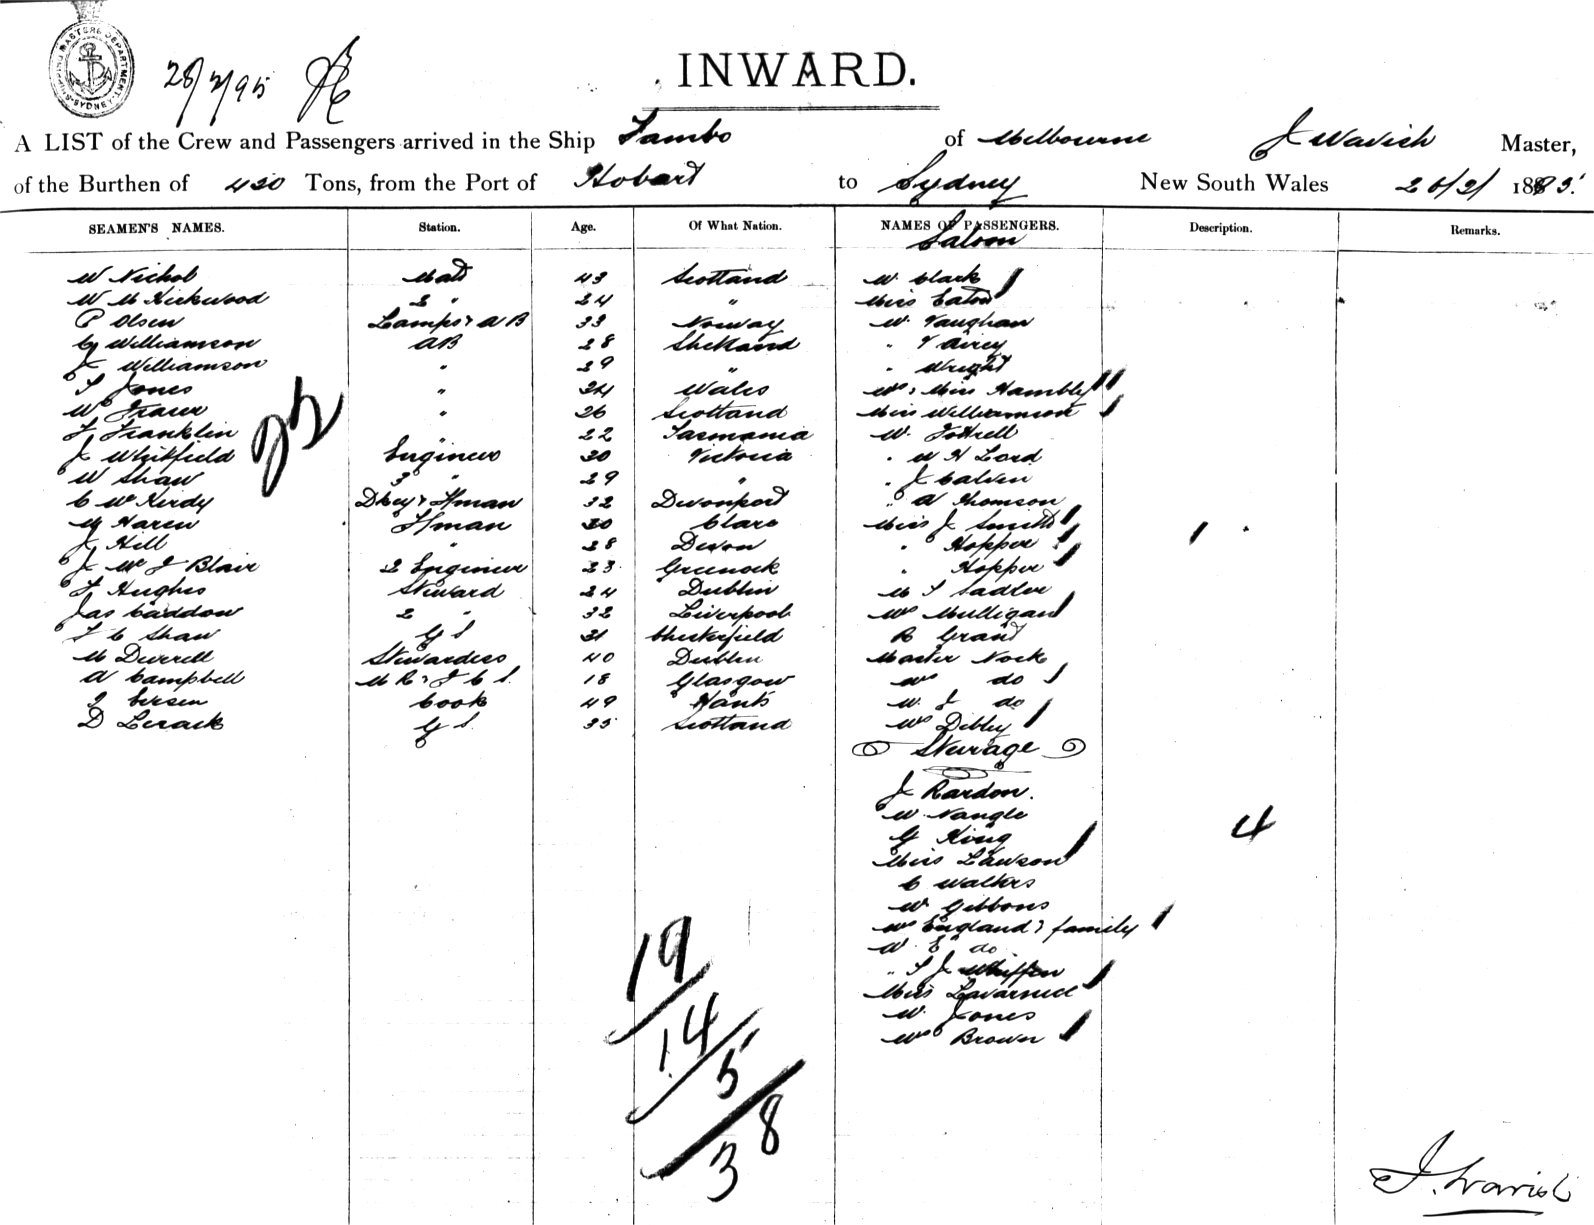 SHIPPING MASTERS DEPARTMENT SYDNEY
28/2/95
INWARD.
A LIST of the Crew and Passengers arrived in the Ship Tambo of Melbourne J Wavish Master,
of the Burthen of 430 Tons, from the Port of Hobart to Sydney New South Wales 26/2/ 1895
SEAMEN'S NAMES. Station. Age. Of What Nation. NAMES OF PASSENGERS. Description. Remarks.
Saloon
W Nichol Mate 43 Scotland W. Clark
W M Kirkwood 2 " 24 " Miss Eaton
P Olsen Lamps & AB 33 Norway W. Vaughan
G Williamson AB 28 Shetland " T Airey
J Williamson " 29 " " Wright
T Jones " 24 Wales Mrs & Miss Hambly
Wm Fraser " 26 Scotland Miss Williamson
F Franklin " 22 Tasmania W. Tottrell
J Whitfield Engineer 30 Victoria " W H Lord
W Shaw 3 " 29 " " J Calvin
C McKirdy Dkey & Fman 32 Devonport " A Thomson
M Haren Fman 30 Clare Miss J Smith
J Hill " 28 Devon " Hopper
J Mc J Blair 2 Engineer 23 Greenock " Hopper
F Hughes Steward 24 Dublin M T Sadler
Jas Caddow 2 " 32 Liverpool Mrs Mulligan
T C Shaw G S 31 Chesterfield R Grant
M Deverell Stewardess 40 Dublin Master Nock
A Campbell M R & F C S. 18 Glasgow Mrs do
Iversen Cook 49 Hants W. J do
D Lerack G S. 35 Scotland Mrs Dibley
Steerage
J Rardon.
W Nangle
G King
4
Miss Lawson
C Walters
W. Gibbons
Mrs England & family
W. E do
" T J Whiffen
Miss
W. Jones
Mrs Brown
19
14
5
38
J. Wavish